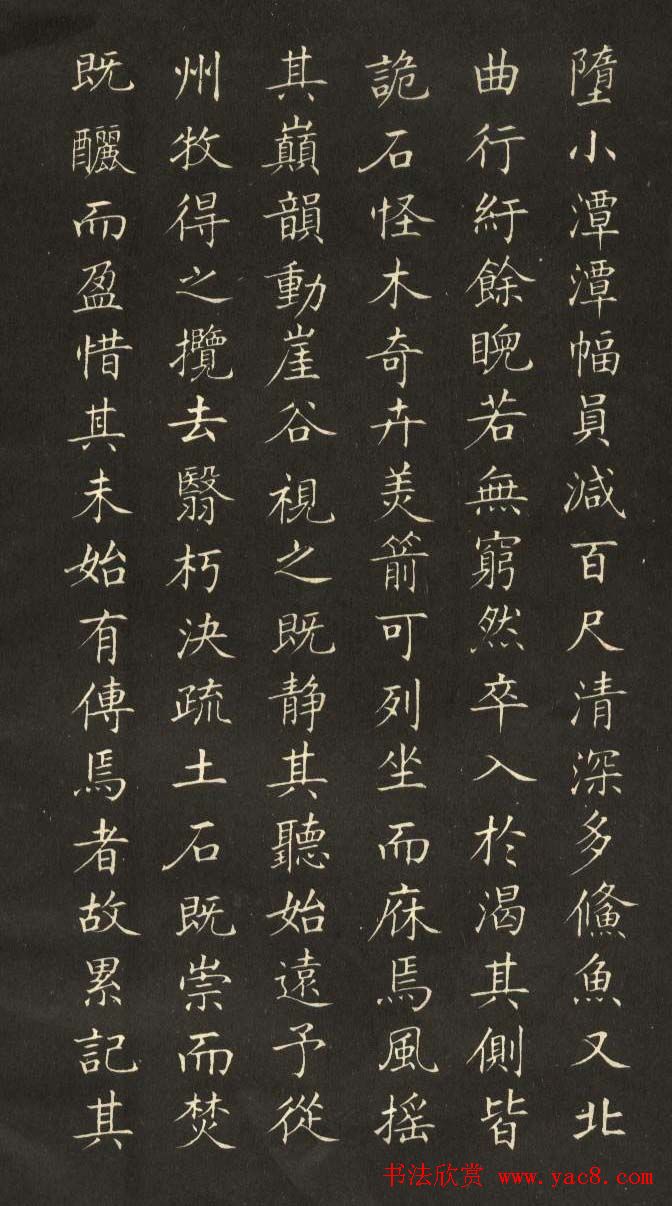 墮小潭潭幅員減百尺清深多鯈魚又北
曲行紆餘睨若無窮然卒入於渴其側皆
詭石怪木奇卉美箭可列坐而庥焉風摇
其巔韻動崖谷視之既静其聽始遠予從
州牧得之攬去翳朽決疏土石既崇而焚
既釃而盈惜其未始有傳焉者故累記其
书法欣赏 www.yac8.com